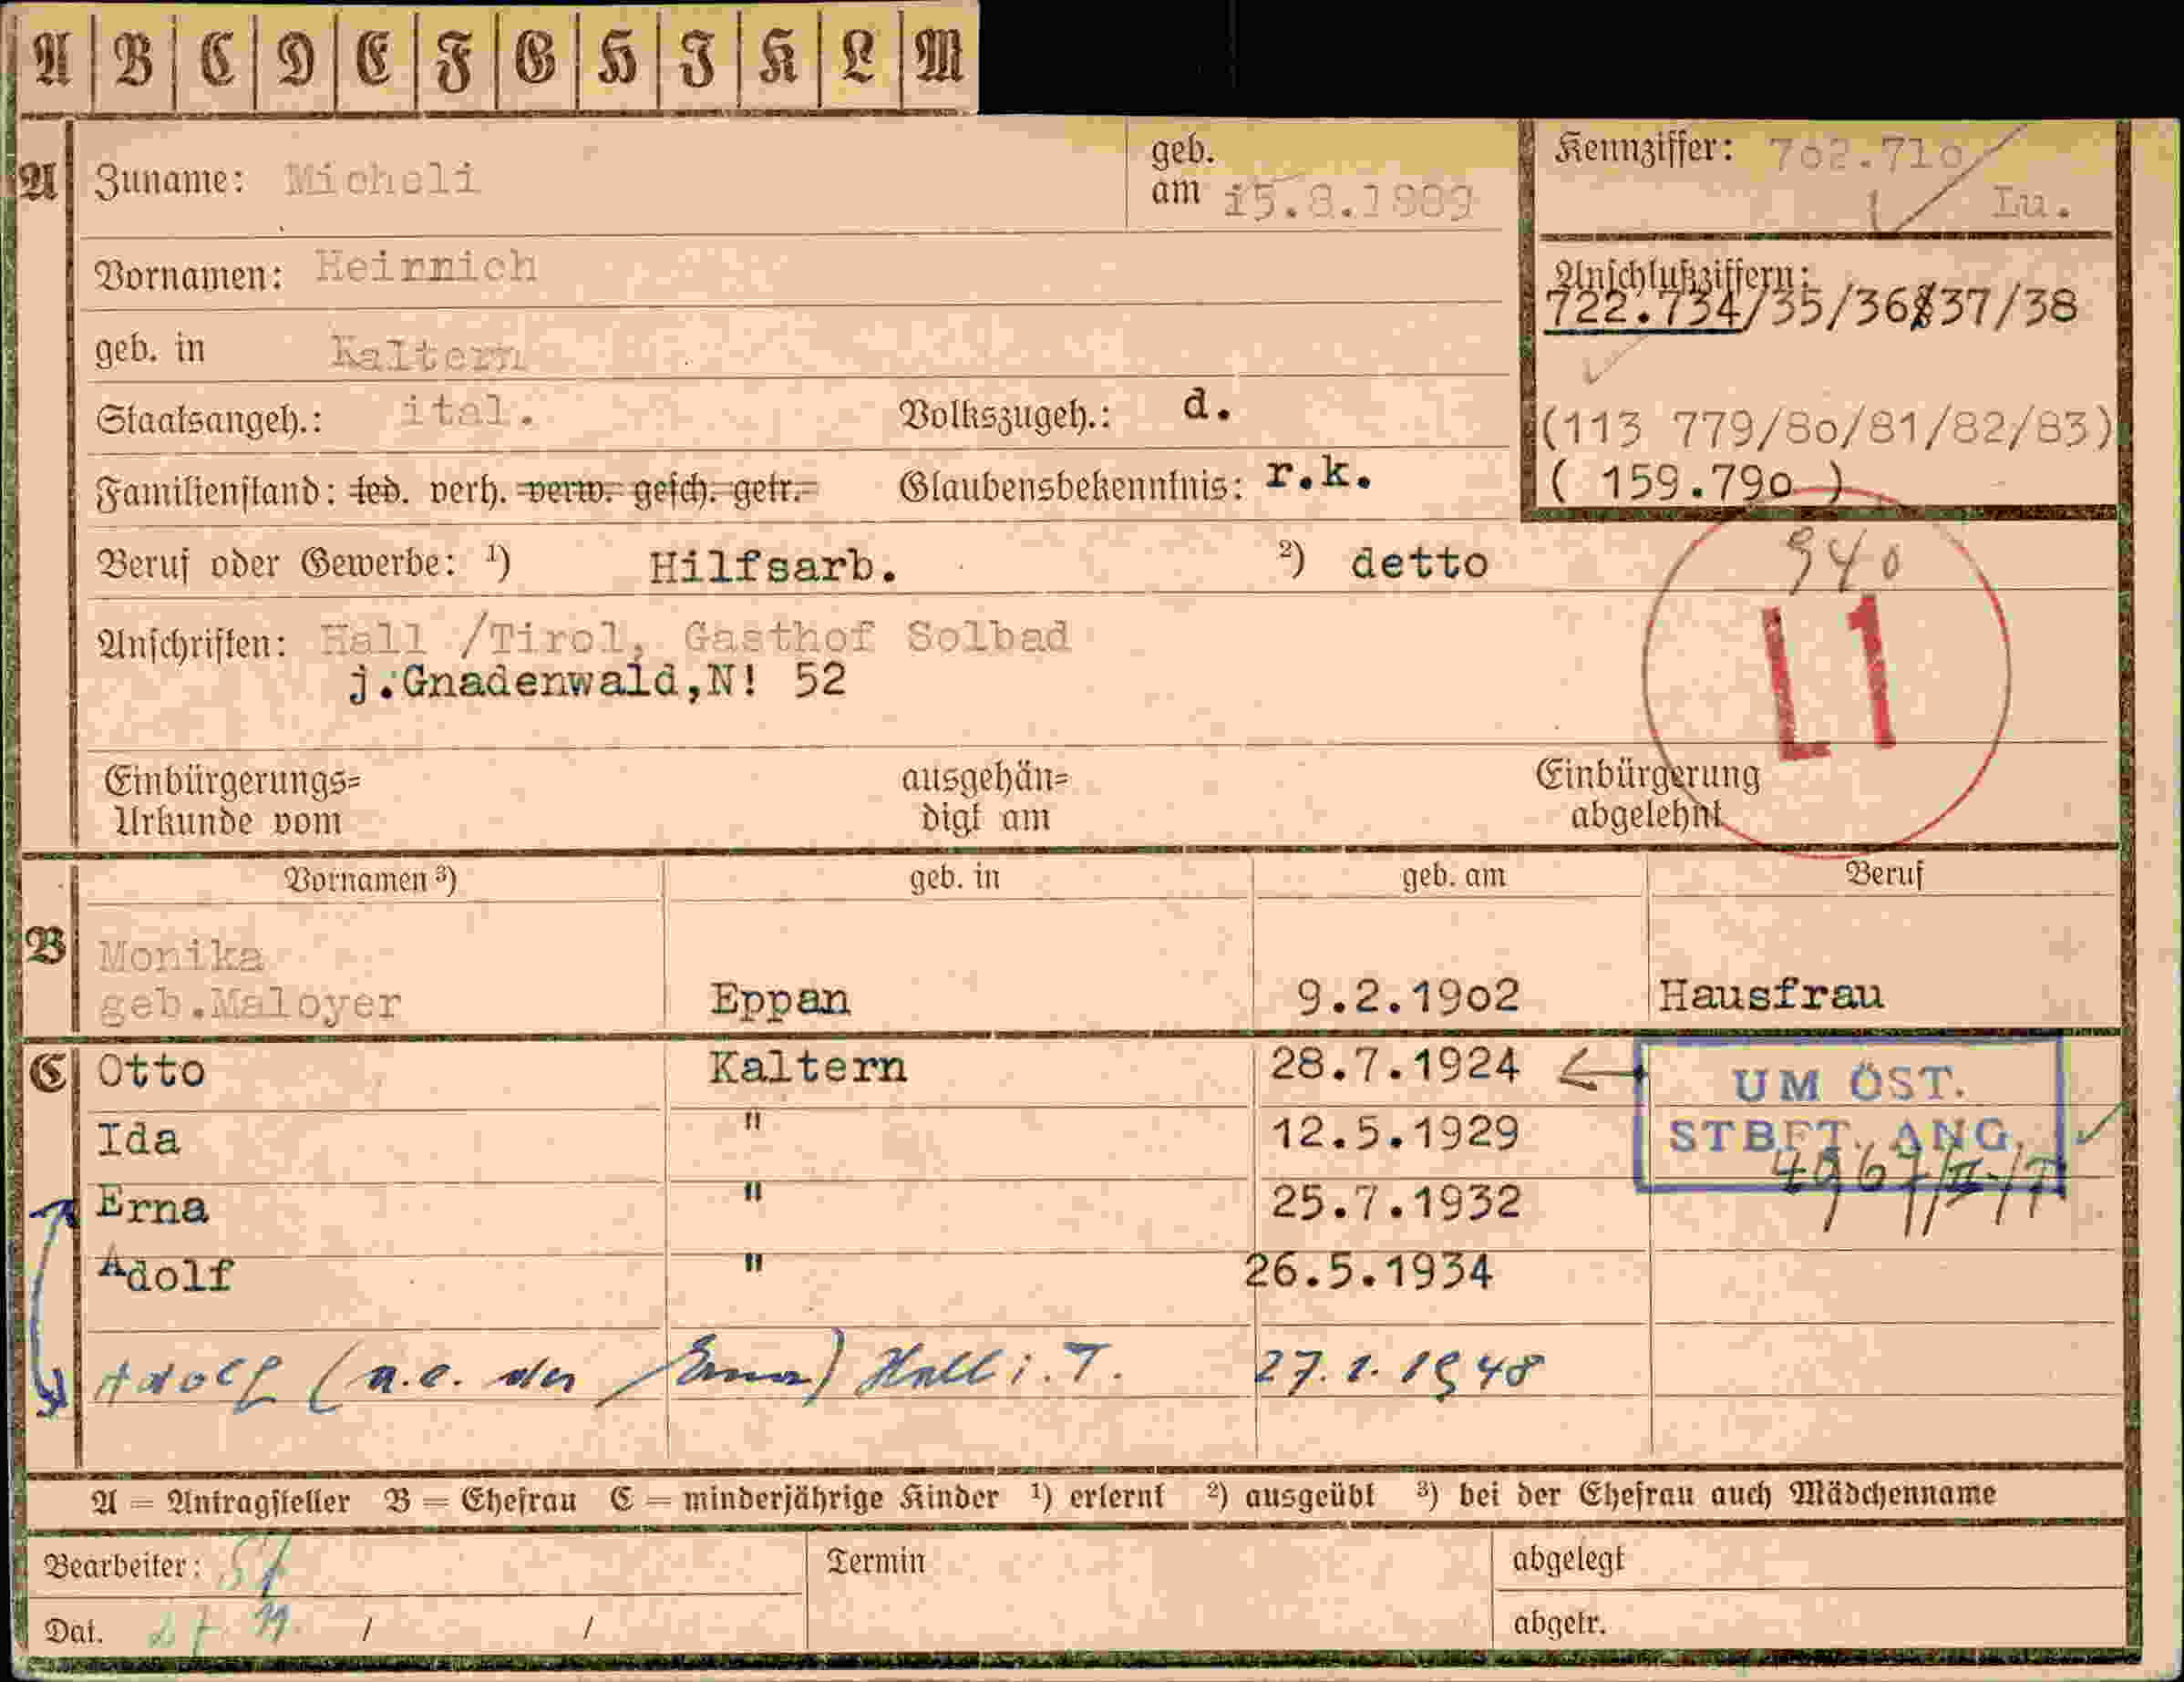 A B C D E F G H I K L M
A
Zuname: Micheli
geb. am 15.8.1889
Kennziffer: 702.710
Lu.
Vornamen: Heirnich
Anschlußziffern:
722.734/35/36/37/38
geb. in Kaltern
Staatsangeh.: ital. Volkszugeh.: d.
(113 779/80/81/82/83)
Familienstand: led. verh. verw. gesch. getr. Glaubensbekenntnis: r.k.
( 159.790 )
Beruf oder Gewerbe: 1) Hilfsarb. 2) detto
940
L1
Anschriften: Hall /Tirol, Gasthof Solbad
j.Gnadenwald,N! 52
Einbürgerungs= ausgehän= Einbürgerung
Urkunde vom digt am abgelehnt
Vornamen 3) geb. in geb. am Beruf
B Monika
geb.Maloyer Eppan 9.2.1902 Hausfrau
C Otto Kaltern 28.7.1924
UM ÖST.
STBFT. ANG.
Ida " 12.5.1929
Erna " 25.7.1932
Adolf " 26.5.1934
Adolf (a.e. der Erna) Hall i. T. 27.1.1948
A = Antragsteller B = Ehefrau C = minderjährige Kinder 1) erlernt 2) ausgeübt 3) bei der Ehefrau auch Mädchenname
Bearbeiter: Termin abgelegt
Dat. / / abgetr.